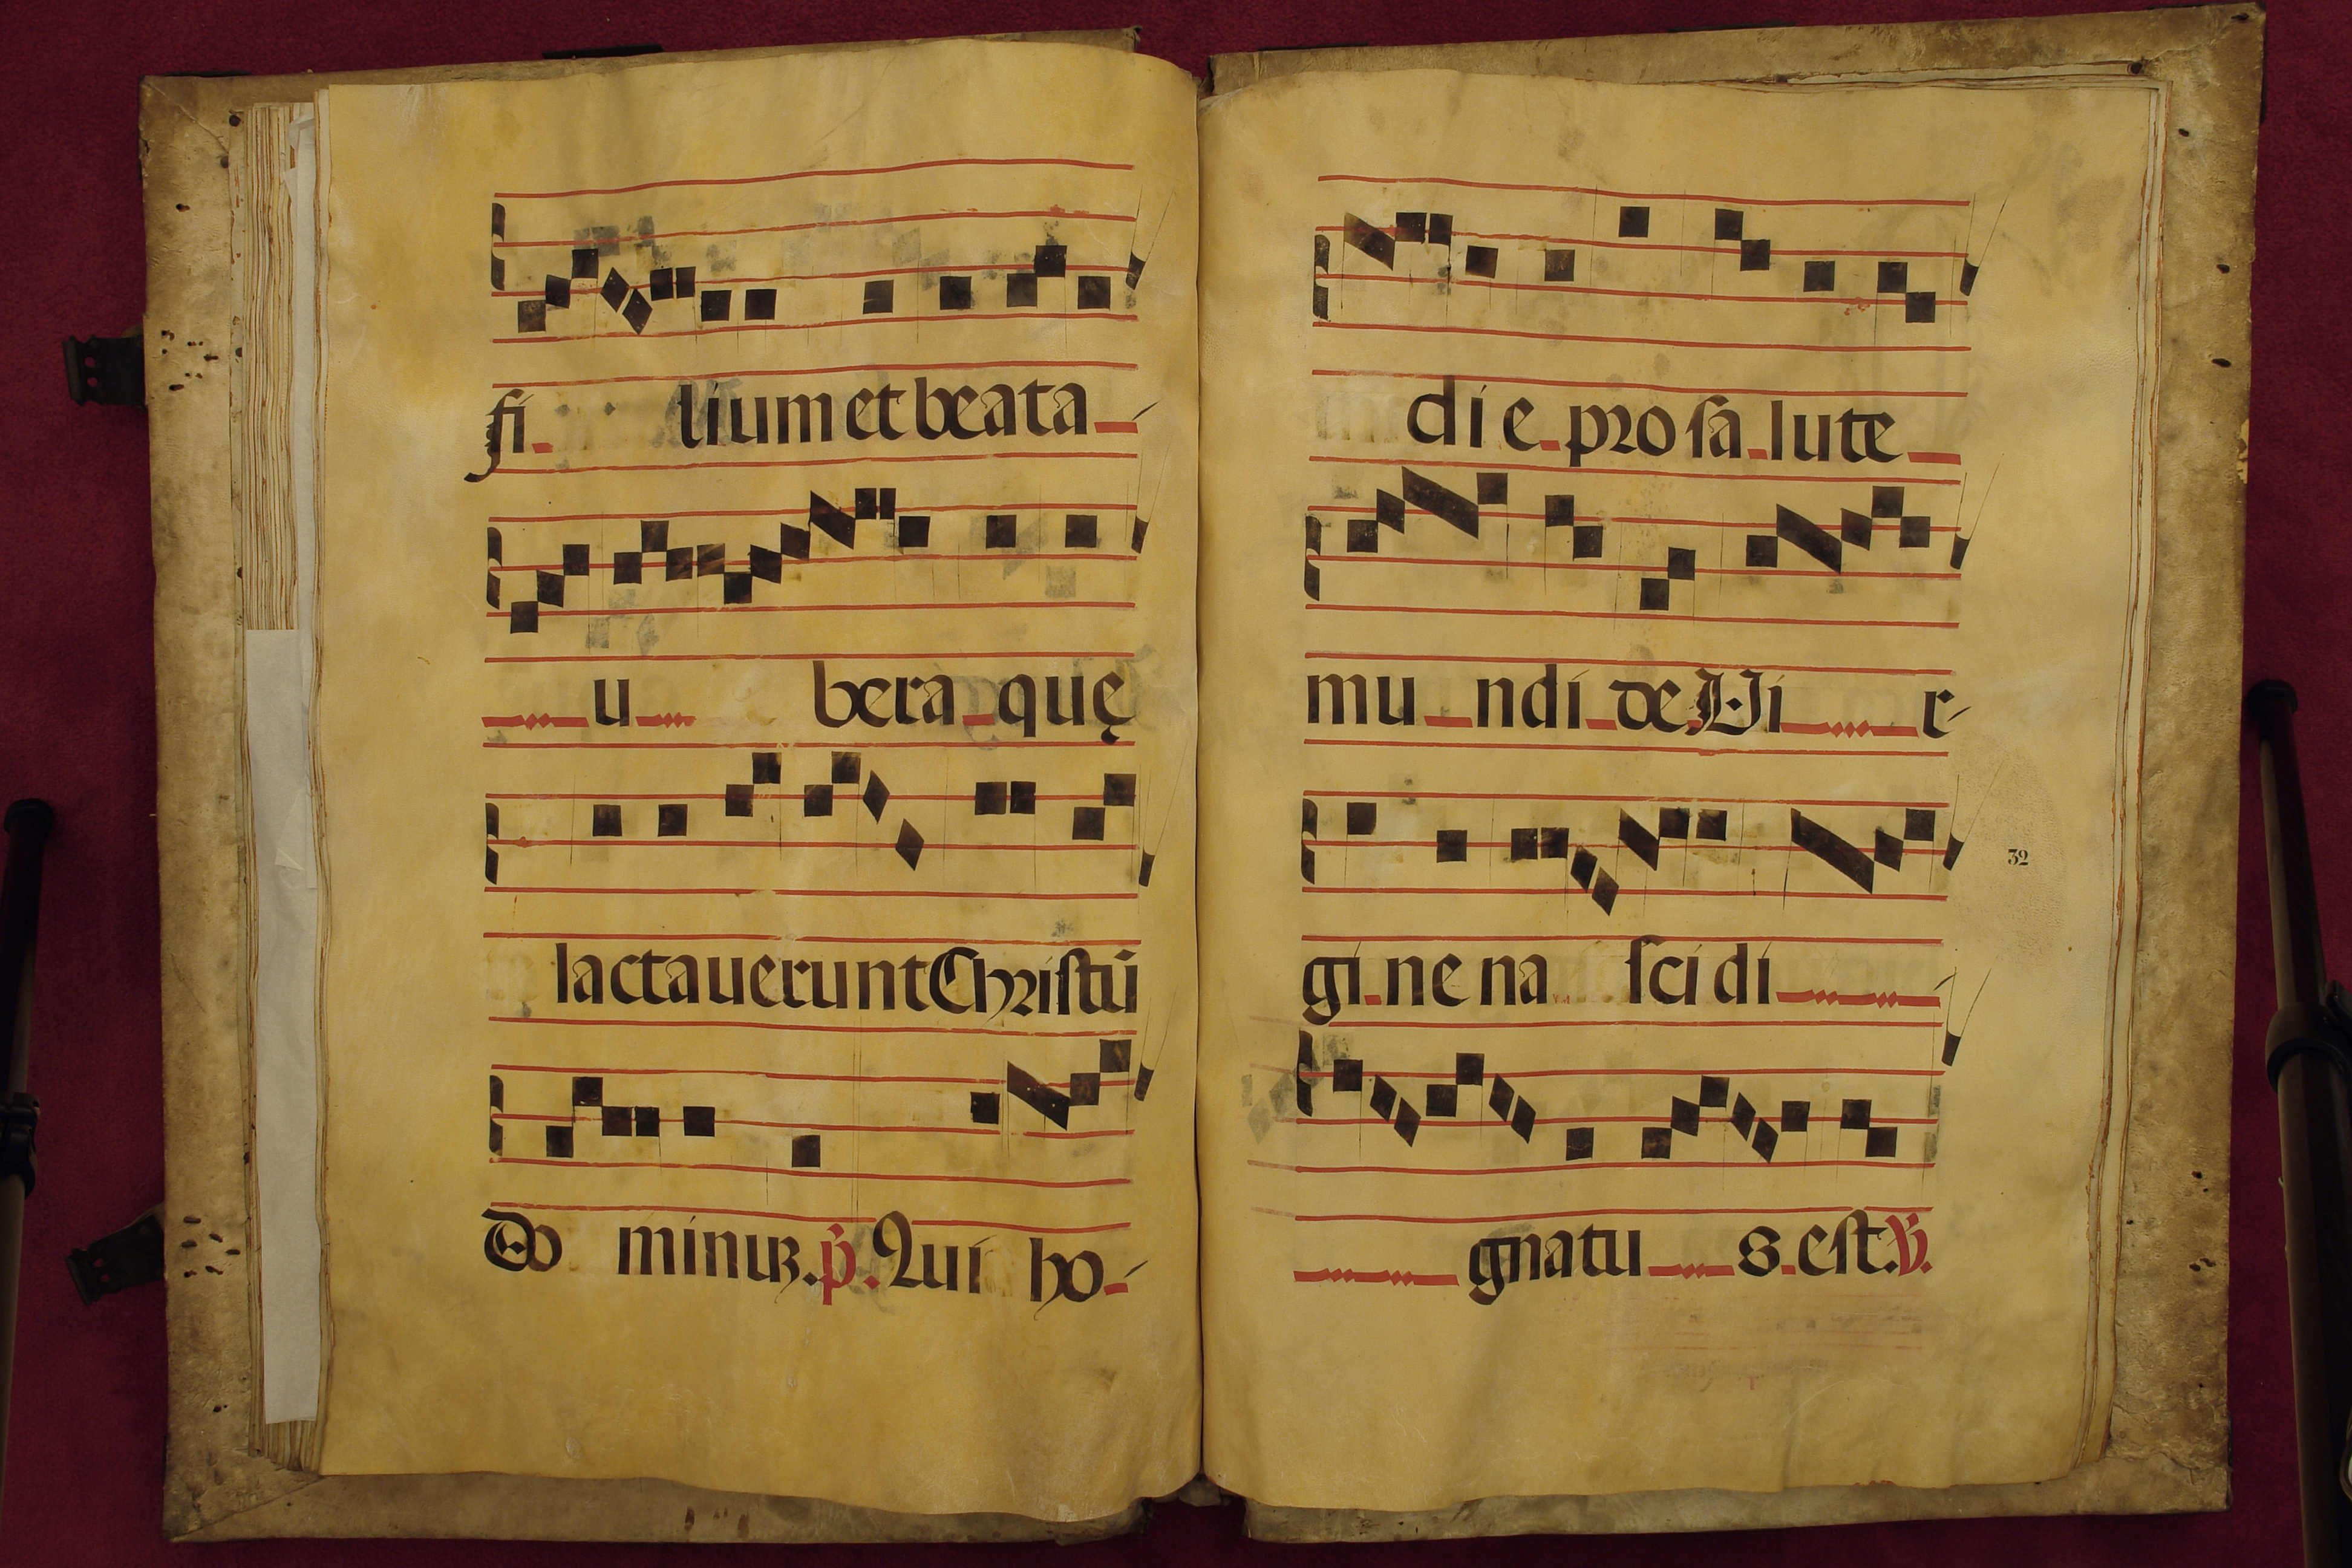 fi lium et beata
u bera quę
lactauerunt Christū
Do minuꝫ. p̄. Qui ho-
die pro sa lute
mu ndi de Vi r-
gi ne na sci di
gnatu s est. ℣.
32